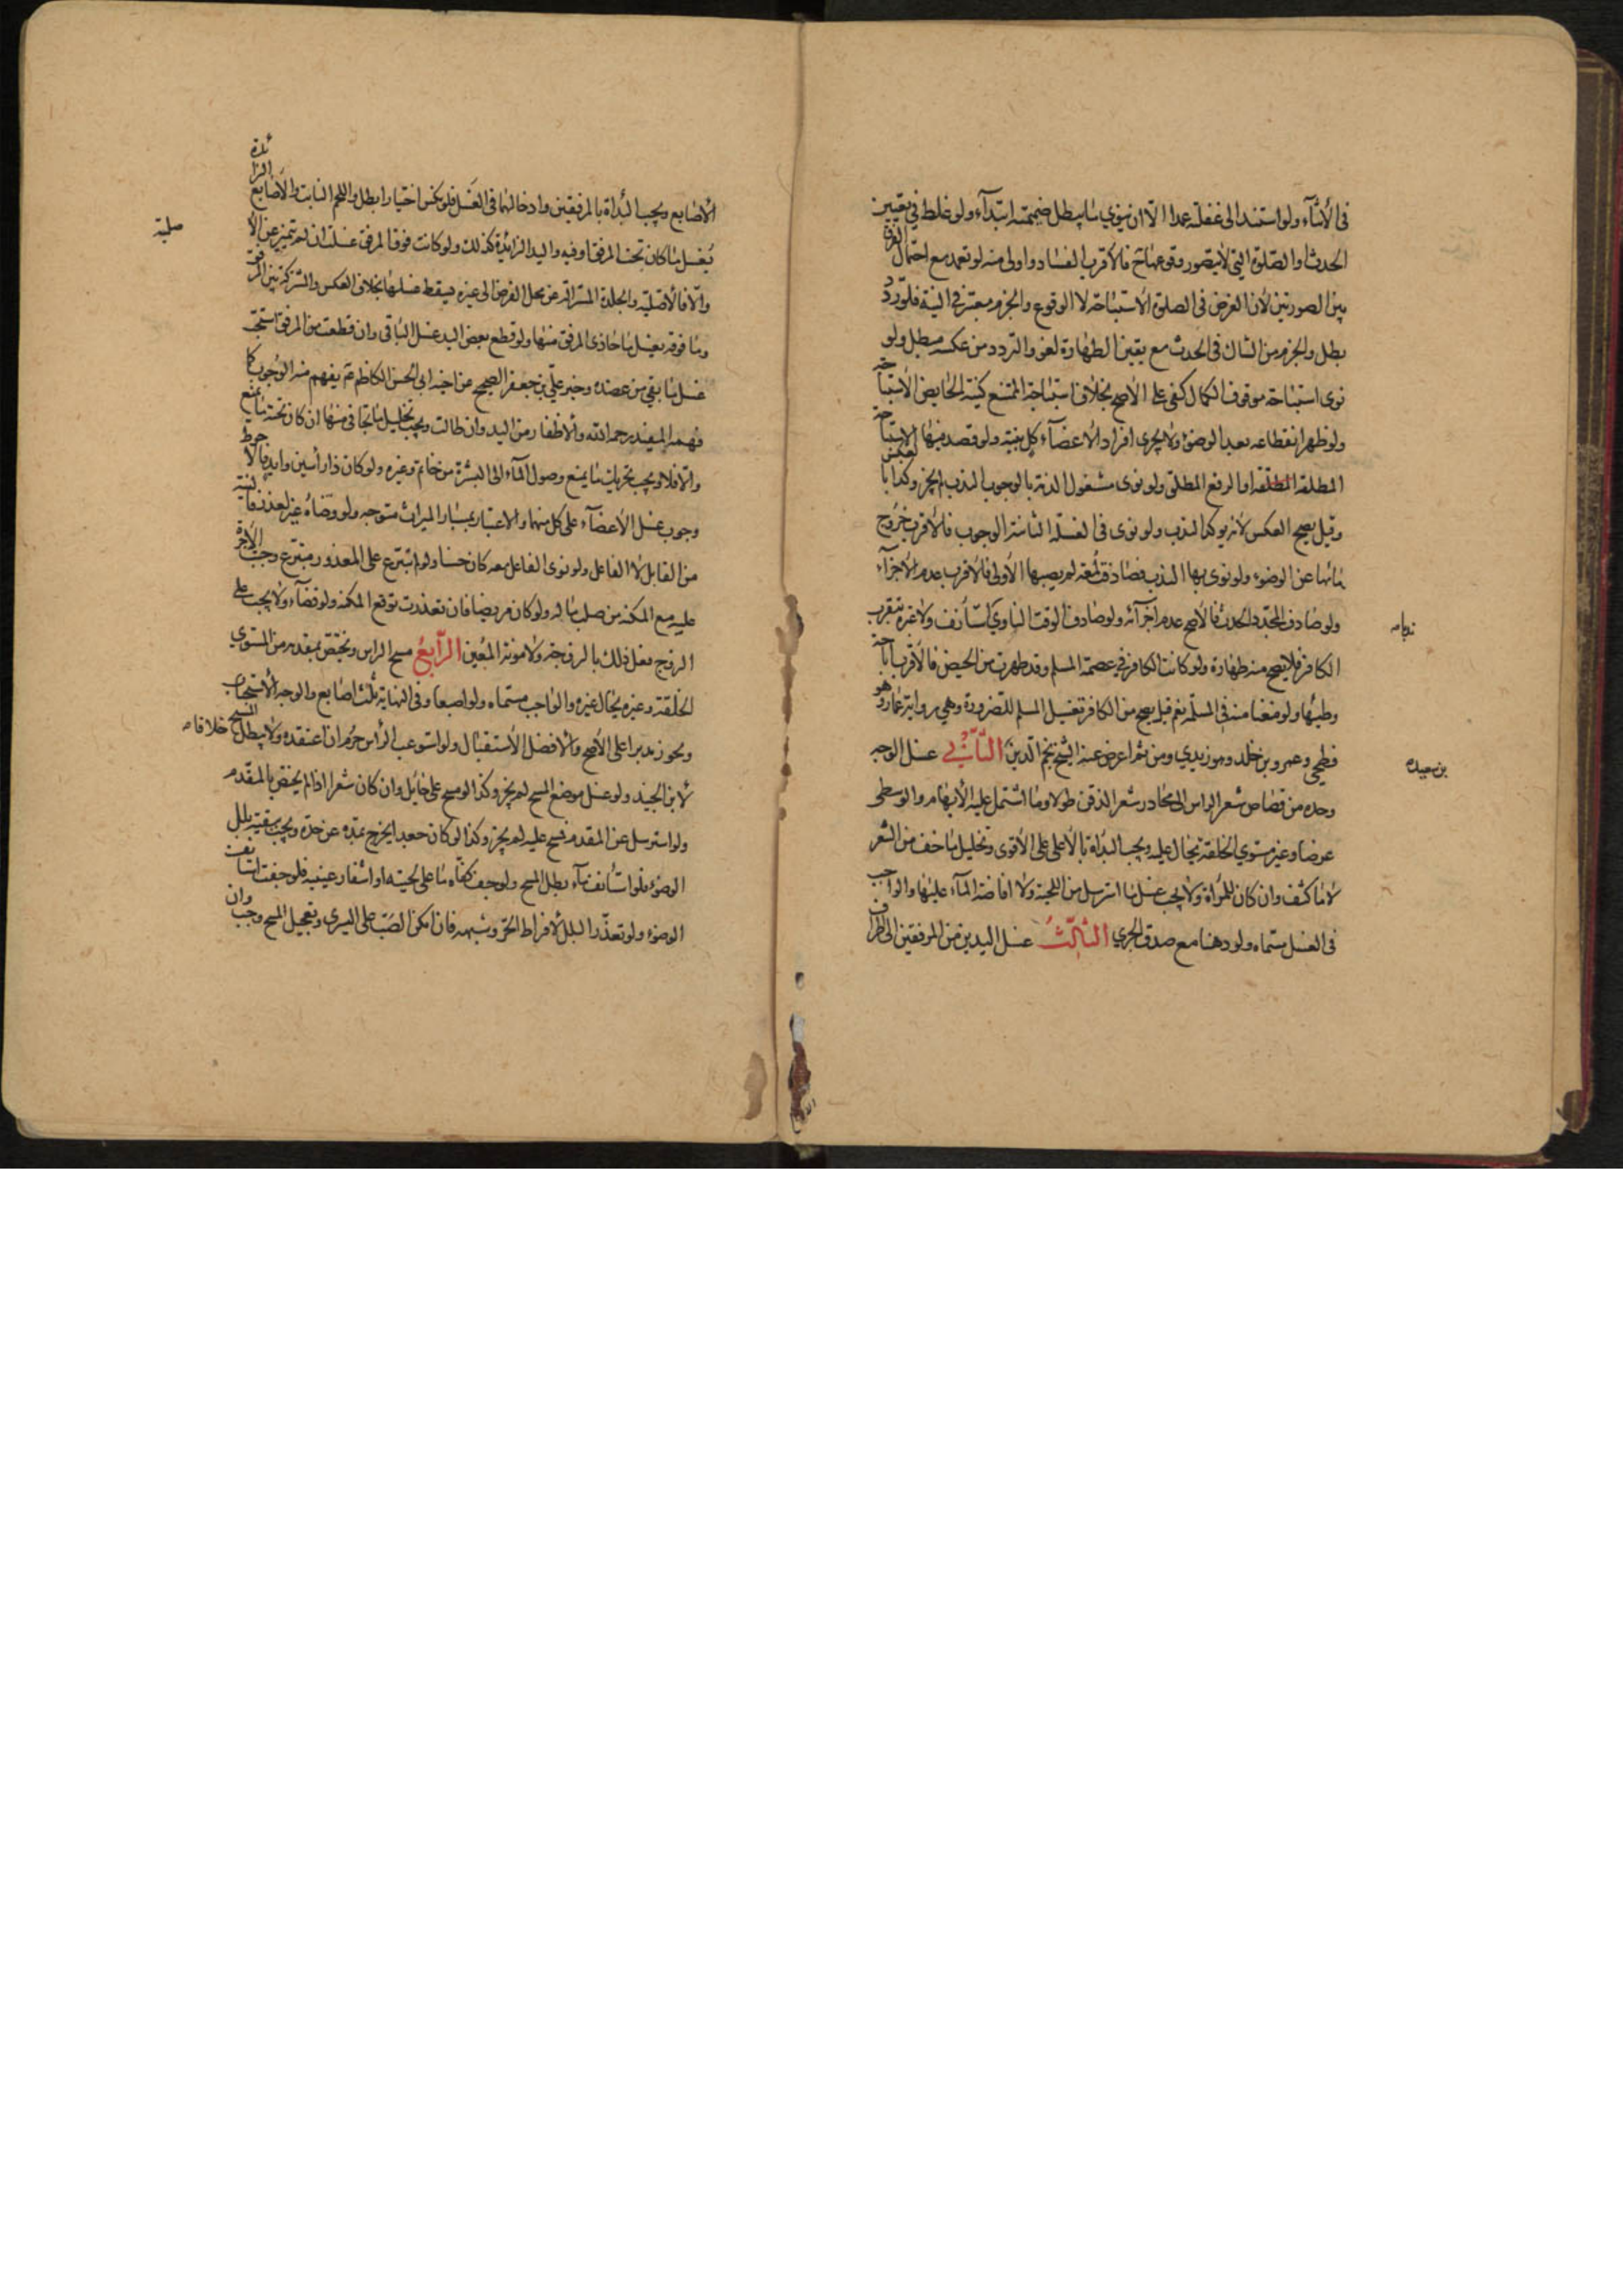 في الأثنآء ولو استند الى غفلة عدا الا ان ينوي ما يبطل ضميمته ابتدآء ولو غلط في تعيين
الحدث او الصلوة التي لا يتصور وقوعها تح فالأقرب الفساد واولى منه لو تعمد مع احتمال الفرق
بين الصورتين لأن الغرض في الصلوة الاستباحة لا الوقوع والجزم معتبر في النية فلو ردد
بطل والجزم من الشاك في الحدث مع يقين الطهارة لغو والتردد من عكسه مبطل ولو
نوى استباحة موقوف الكمال كفى على الأصح بخلاف استباحة الممتنع كنية الحايض الاستباحة
ولو ظهر انقطاعه بعد الوضوء ولا يجري افراد الاعضآء كل بنية ولو قصد منها الاستباحة
المطلقة او الرفع المطلق ولو نوى مشغول الذمة بالوجوب الندب لم يجز وكذا بالعكس
وقيل يصح العكس لأنه يوكد الندب ولو نوى في الغسلة الثانية الوجوب فالأقرب خروج
مائها عن الوضوء ولو نوى بها الندب فصادفت لمعة لم يصبها الأولى فالأقرب عدم الأجزآء
ولو صادف المجدد الحدث فالأصح عدم اجزآئه ولو صادف الوقت الناوي استأنف ولا غيره بتقرب
نيابه
الكافر فلا يصح منه طهارة ولو كانت الكافرة في عصمة المسلم وقد طهرت من الحيض فالأقرب اباحة
وطيها ولو منعنا منه في المسلمة نعم قيل يصح من الكافر تغسيل المسلم للضرورة وهي رواية عمار وهو
فطحي وعمرو بن خلد وهو زيدي ومن ثم اعرض عنه الشيخ نجم الدين الثاني غسل الوجه
بن سعيده
وحده من قصاص شعر الراس الى محادر شعر الذقن طولا وما اشتمل عليه الأبهام والوسطى
عرضا وغير مستوي الخلقة يحال عليه ويجب البدأة بالأعلى على الأقوى وتخليل ما خف من الشعر
لا ما كثف وان كان للمرأة ولا يجب غسل ما استرسل من اللحية ولا افاضة المآء عليها والواجب
في الغسل مسماه ولو دهنا مع صدق الجري الثالث غسل اليدين من المرفقين الى اطراف
الأصابع ويجب البدأة بالمرفقين وادخالهما في الغسل فلو نكس اختيارا بطل واللحم النابت والأصابع الزائدة
يغسل ما كان تحت المرفق او فيه واليد الزائدة كذلك ولو كانت فوق المرفق غسلت ان لم تتميز عن الأ
صلية
والا فالأصلية والجلدة المتدلية عن محل الفرض الى غيره فيسقط غسلها بخلاف العكس والمشتركة بين المرفق
وما فوقه يغسل ما حاذى المرفق منها ولو قطع بعض اليد غسل الباقي وان قطعت من المرفق استحب
غسل ما بقي من عضده وخبر علي بن جعفر الصحيح عن اخيه ابي الحسن الكاظم ع يفهم منه الوجوب كما
فهمه المفيد رحمه الله والأظفار من اليد وان طالت ويجب تخليل ما تجافى منها ان كان تحته ما يمنع
والا فلا ويجب تحريك ما يمنع وصول المآء الى البشرة من خاتم وغيره ولو كان ذا رأسين وابدن فالأحوط
وجوب غسل الأعضآء على كل منهما والاعتبار بمسبار الميراث متوجه ولو وضأه غيره لعذر فالنية
من القابل لا الفاعل ولو نوى الفاعل معه كان حسنا ولو لم يتبرع على المعذور متبرع وجبت الأجرة
عليه مع المكنة من صلب ماله ولو كان مريضا فان تعذرت توقع المكنة ولو قضآء ولا يجب على
الزوج فعل ذلك بالزوجة ولا مونة المعين الرابع مسح الراس ويختص بمقدمه من المستوي
الخلقة وغيره يحال لغيره والواجب مسماه ولو اصبعا وفي النهاية ثلث اصابع والوجه الأستحباب
ويجوز مدبرا على الأصح والأفضل الأستقبال ولو استوعب الرأس حرم ان اعتقده ولا يبطل المسح خلافا
لأبن الجنيد ولو غسل موضع المسح لم يجز وكذا لو مسح على حايل وان كان شعرا اذا لم يختص بالمقدم
ولو استرسل عن المقدم فمسح عليه لم يجز وكذا لو كان جعدا يخرج بمده عن حده ويجب ببقية بلل
الوضوء فلو استأنف مآء بطل المسح ولو جف كفاه ما على لحيته او اشفار عينيه فلو جفت استأنف
الوضوء ولو تعذر البلل لأفراط الحر وشبهه فان امكن الصب على اليسرى وتعجيل المسح وجب وان